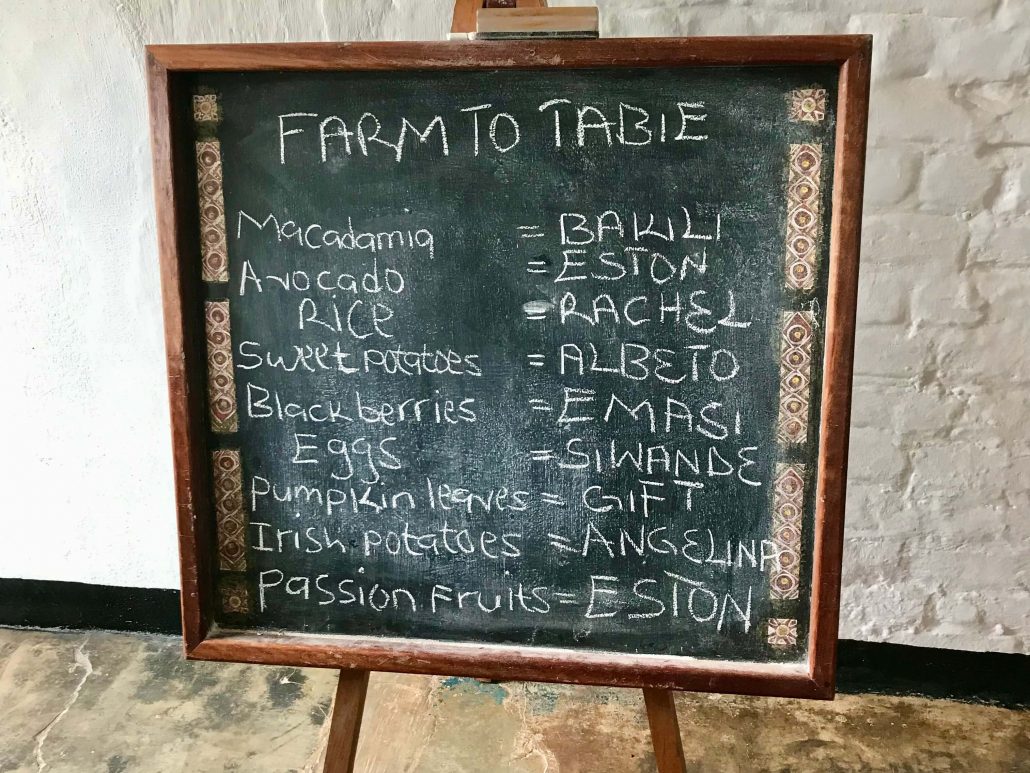 FARM TO TABlE
Macadamia = BAKILI
Avocado = ESTON
RICe = RACHEL
Sweet potatoes = ALBETO
Blackberries = EMASI
Eggs = SIWANDE
Pumpkin leaves = GIFT
Irish potatoes = ANGELINA
Passion Fruits = ESTON